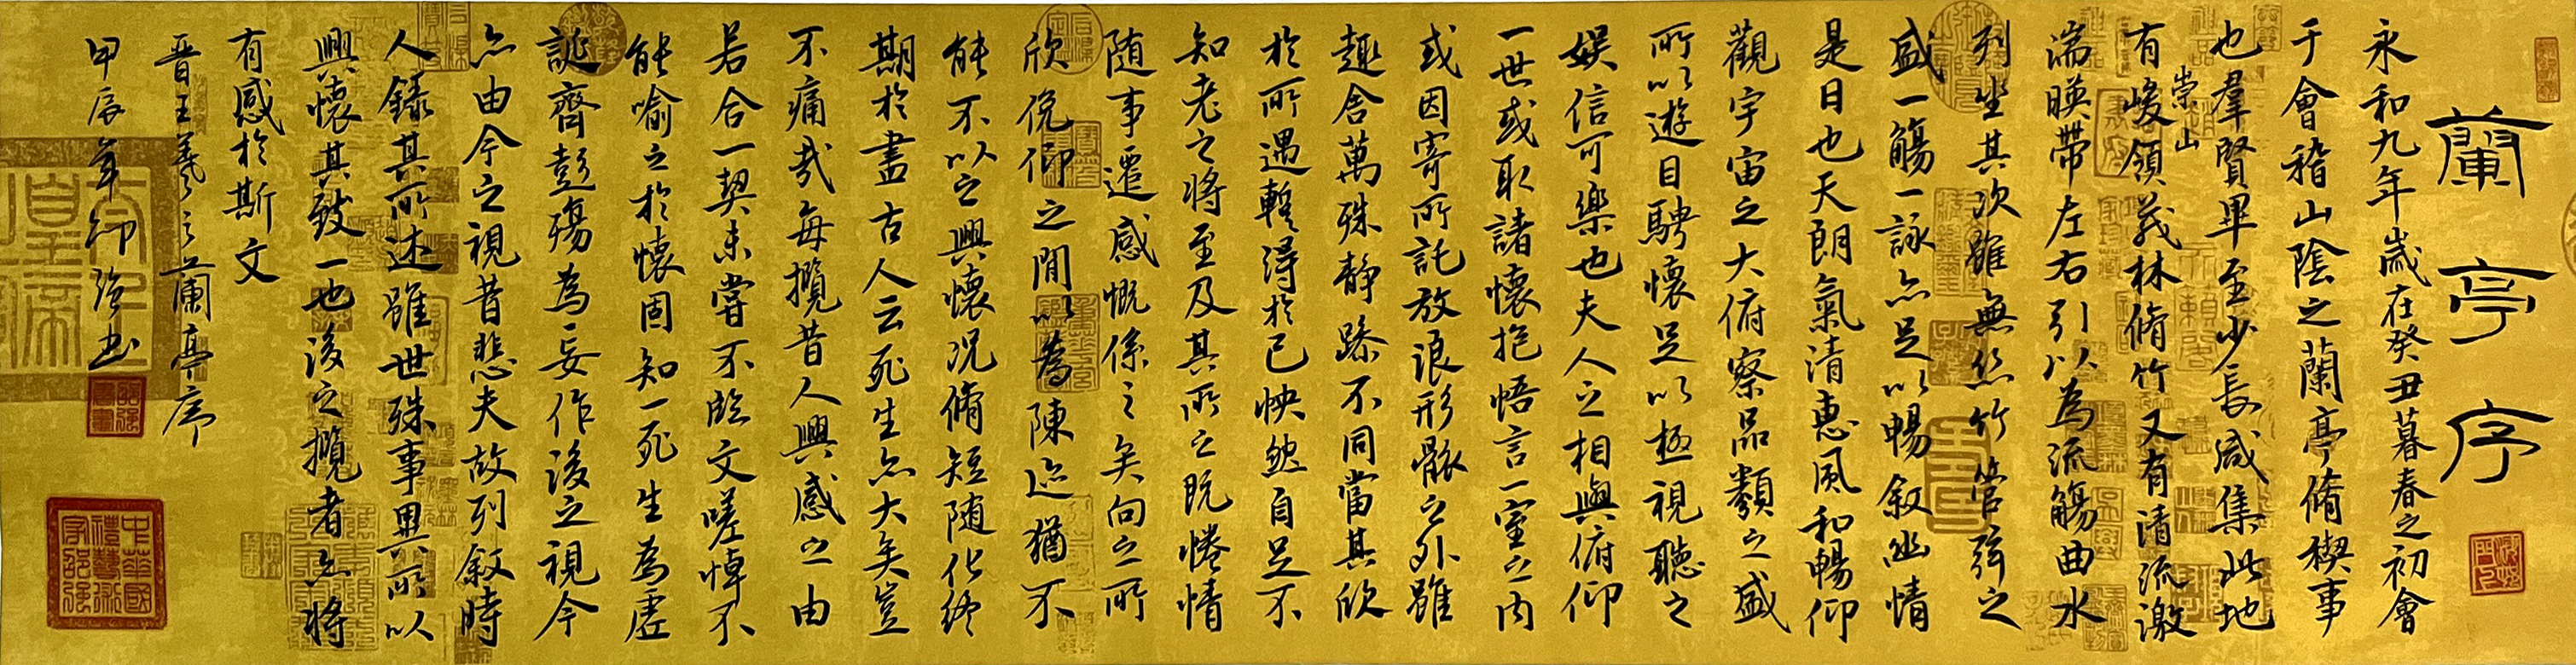 蘭亭序
永和九年歲在癸丑暮春之初會
于會稽山陰之蘭亭脩稧事
也羣賢畢至少長咸集此地
有崇山峻領茂林脩竹又有清流激
湍暎帶左右引以為流觴曲水
列坐其次雖無絲竹管弦之
盛一觴一詠亦足以暢叙幽情
是日也天朗氣清惠風和暢仰
觀宇宙之大俯察品類之盛
所以遊目騁懷足以極視聽之
娱信可樂也夫人之相與俯仰
一世或取諸懷抱悟言一室之內
或因寄所託放浪形骸之外雖
趣舍萬殊静躁不同當其欣
於所遇蹔得於己怏然自足不
知老之將至及其所之既惓情
随事遷感慨係之矣向之所
欣俛仰之閒以為陳迹猶不
能不以之興懷況脩短随化終
期於盡古人云死生亦大矣豈
不痛哉每攬昔人興感之由
若合一契未嘗不臨文嗟悼不
能喻之於懷固知一死生為虛
誕齊彭殤為妄作後之視今
亦由今之視昔悲夫故列叙時
人錄其所述雖世殊事異所以
興懷其致一也後之攬者亦將
有感於斯文
晋王羲之蘭亭序
甲辰年邵强书
中華國禮藝術家邵强